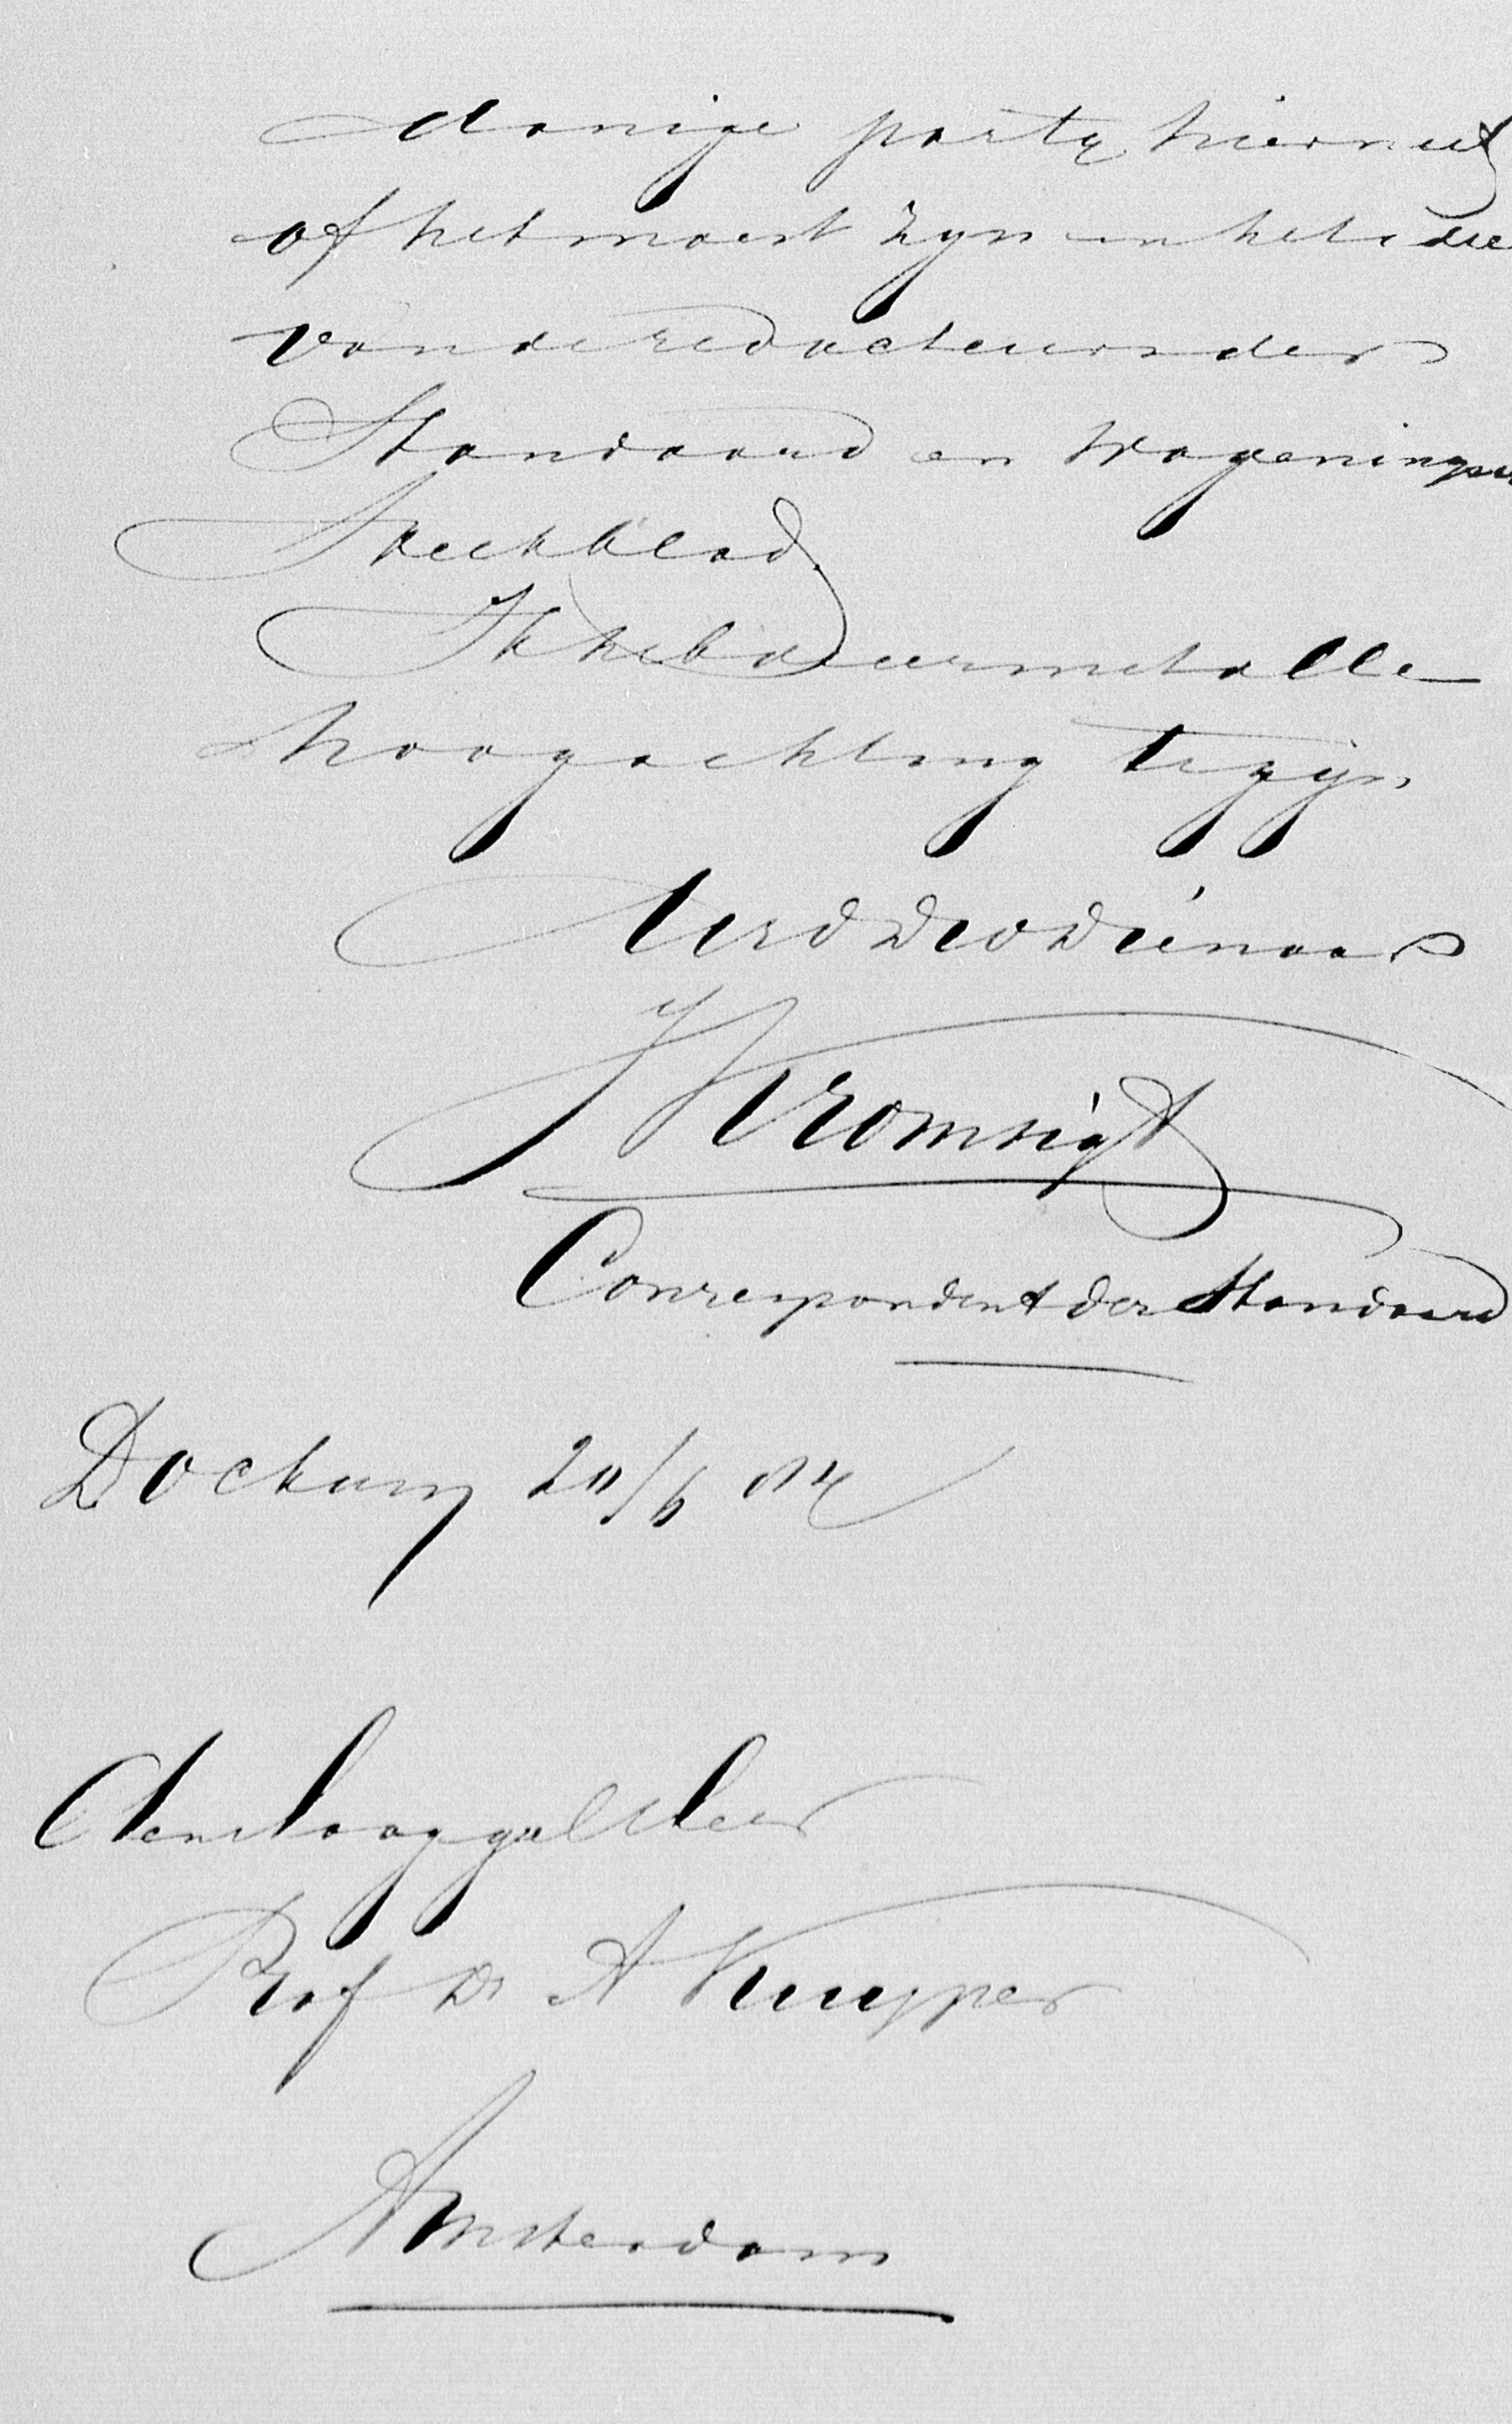 danige party hiermeê
of het moest zyn in het die
van de redacteuren der
Standaard en Wageningsch
Weekblad.
Ik heb de eer met alle
hoogachting te zijn
Uw d w dienaar
J Kromsigt
Correspondent der Standaard
Dockum 20/6 84
Aan den Hoog gel Heer
Prof Dr A Kuyper
Amsterdam